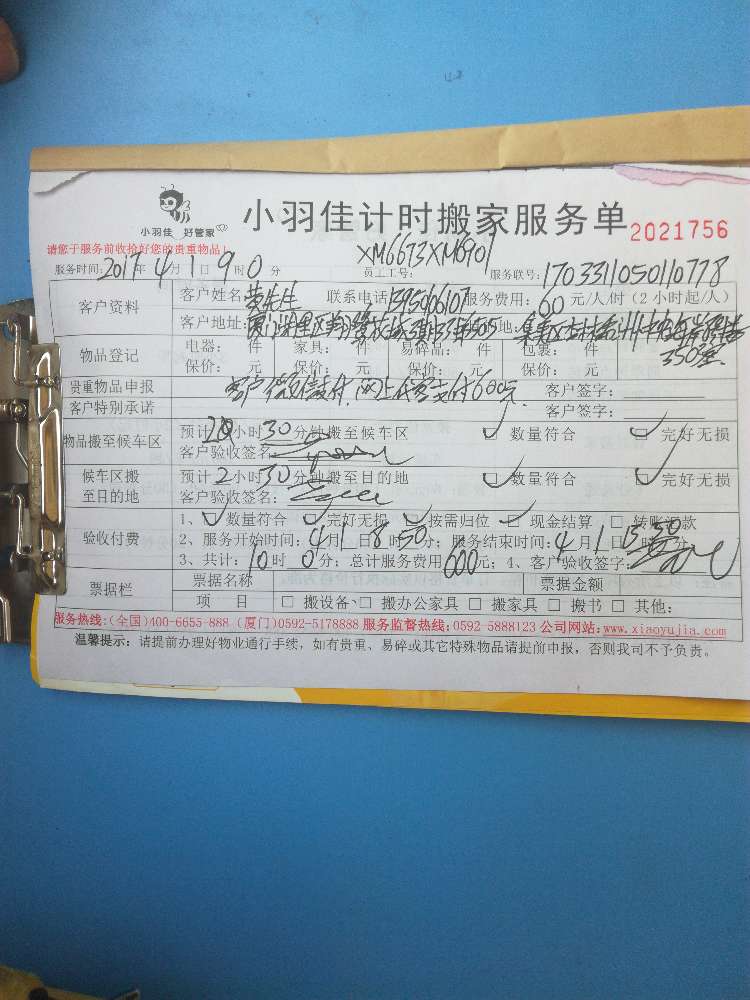 小羽佳 好管家
小羽佳计时搬家服务单 2021756
请您于服务前收拾好您的贵重物品！
XM6673XM6901
服务时间：2017年4月1日9时0分 员工工号： 服务联号：1703311050110778
客户资料 客户姓名：黄先生 联系电话 服务费用：60元/人/时（2小时起/人）
客户地址： 地：
350室
物品登记 电器： 件 家具： 件 易碎品： 件 包裹： 件
保价： 元 保价： 元 保价： 元 保价： 元
贵重物品申报 客户微信支付，网上代客支付600元 客户签字：
客户特别承诺 客户签字：
物品搬至候车区 预计2小时30分钟搬至候车区 ☑数量符合 ☑完好无损
客户验收签名：
候车区搬至目的地 预计2小时30分钟搬至目的地 ☑数量符合 ☑完好无损
客户验收签名：
验收付费 1、☑数量符合 ☑完好无损 ☑按需归位 ☑现金结算 □转账汇款
2、服务开始时间：4月1日8时50分；服务结束时间：4月1日 时 分
3、共计：10时0分；总计服务费用600元；4、客户验收签字：
票据栏 票据名称 票据金额
项 目 □搬设备、□搬办公家具 □搬家具 □搬书 □其他：
服务热线：(全国)400-6655-888 (厦门)0592-5178888 服务监督热线：0592-5888123 公司网站：www.xiaoyujia.com
温馨提示：请提前办理好物业通行手续，如有贵重、易碎或其它特殊物品请提前申报，否则我司不予负责。